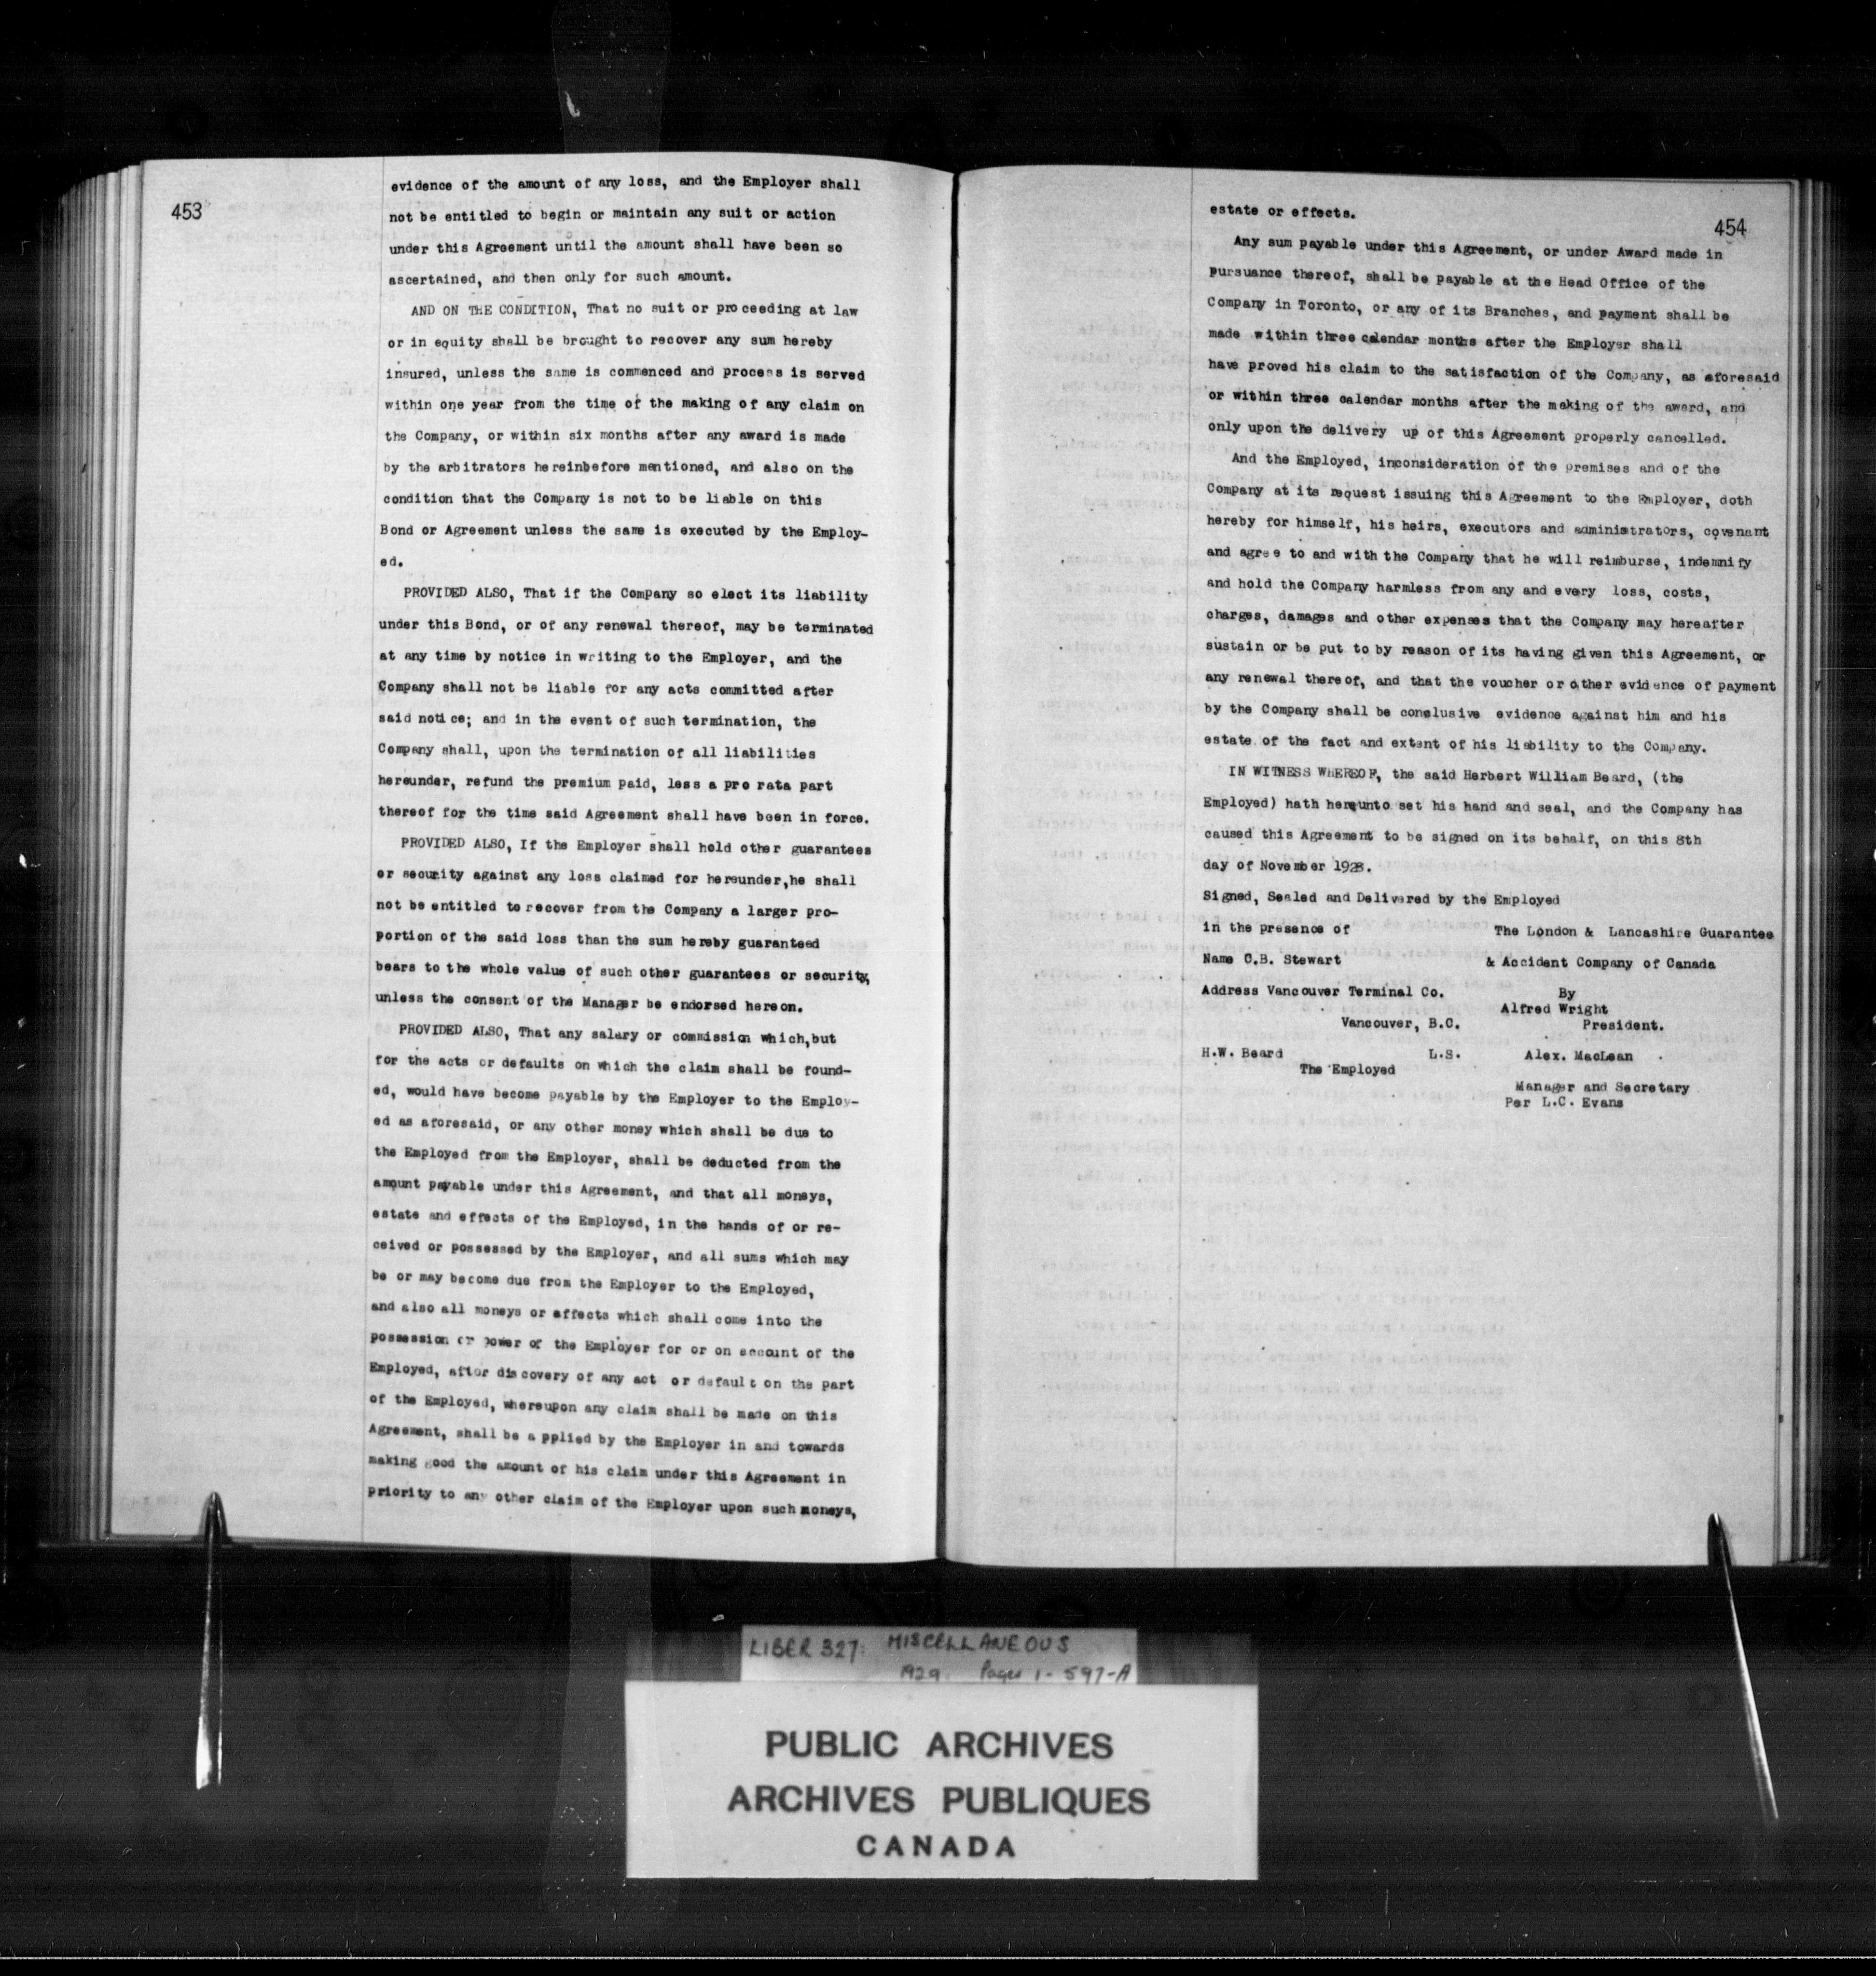 453
evidence of the amount of any loss, and the Employer shall
not be entitled to begin or maintain any suit or action
under this Agreement until the amount shall have been so
ascertained, and then only for such amount.
AND ON THE CONDITION, That no suit or proceeding at law
or in equity shall be brought to recover any sum hereby
insured, unless the same is commenced and process is served
within one year from the time of the making of any claim on
the Company, or within six months after any award is made
by the arbitrators hereinbefore mentioned, and also on the
condition that the Company is not to be liable on this
Bond or Agreement unless the same is executed by the Employ-
ed.
PROVIDED ALSO, That if the Company so elect its liability
under this Bond, or of any renewal thereof, may be terminated
at any time by notice in writing to the Employer, and the
Company shall not be liable for any acts committed after
said notice; and in the event of such termination, the
Company shall, upon the termination of all liabilities
hereunder, refund the premium paid, less a pro rata part
thereof for the time said Agreement shall have been in force.
PROVIDED ALSO, If the Employer shall hold other guarantees
or security against any loss claimed for hereunder,he shall
not be entitled to recover from the Company a larger pro-
portion of the said loss than the sum hereby guaranteed
bears to the whole value of such other guarantees or security,
unless the consent of the Manager be endorsed hereon.
PROVIDED ALSO, That any salary or commission which,but
for the acts or defaults on which the claim shall be found-
ed, would have become payable by the Employer to the Employ-
ed as aforesaid, or any other money which shall be due to
the Employed from the Employer, shall be deducted from the
amount payable under this Agreement, and that all moneys,
estate and effects of the Employed, in the hands of or re-
ceived or possessed by the Employer, and all sums which may
be or may become due from the Employer to the Employed,
and also all moneys or effects which shall come into the
possession or power of the Employer for or on account of the
Employed, after discovery of any act or default on the part
of the Employed, whereupon any claim shall be made on this
Agreement, shall be a pplied by the Employer in and towards
making good the amount of his claim under this Agreement in
priority to any other claim of the Employer upon such moneys,
454
estate or effects.
Any sum payable under this Agreement, or under Award made in
pursuance thereof, shall be payable at the Head Office of the
Company in Toronto, or any of its Branches, and payment shall be
made within three calendar months after the Employer shall
have proved his claim to the satisfaction of the Company, as aforesaid
or within three calendar months after the making of the award, and
only upon the delivery up of this Agreement properly cancelled.
And the Employed, inconsideration of the premises and of the
Company at its request issuing this Agreement to the Employer, doth
hereby for himself, his heirs, executors and administrators, covenant
and agree to and with the Company that he will reimburse, indemnify
and hold the Company harmless from any and every loss, costs,
charges, damages and other expenses that the Company may hereafter
sustain or be put to by reason of its having given this Agreement, or
any renewal thereof, and that the voucher or other evidence of payment
by the Company shall be conclusive evidence against him and his
estate of the fact and extent of his liability to the Company.
IN WITNESS WHEREOF, the said Herbert William Beard, (the
Employed) hath hereunto set his hand and seal, and the Company has
caused this Agreement to be signed on its behalf, on this 8th
day of November 1928.
Signed, Sealed and Delivered by the Employed
in the presence of The London & Lancashire Guarantee
Name C.B. Stewart & Accident Company of Canada
Address Vancouver Terminal Co. By
Alfred Wright
Vancouver, B.C. President.
H.W. Beard L.S. Alex. MacLean
The Employed
Manager and Secretary
Per L.C. Evans
LIBER 327: MISCELLANEOUS
1929. Pages 1-597-A
PUBLIC ARCHIVES
ARCHIVES PUBLIQUES
CANADA